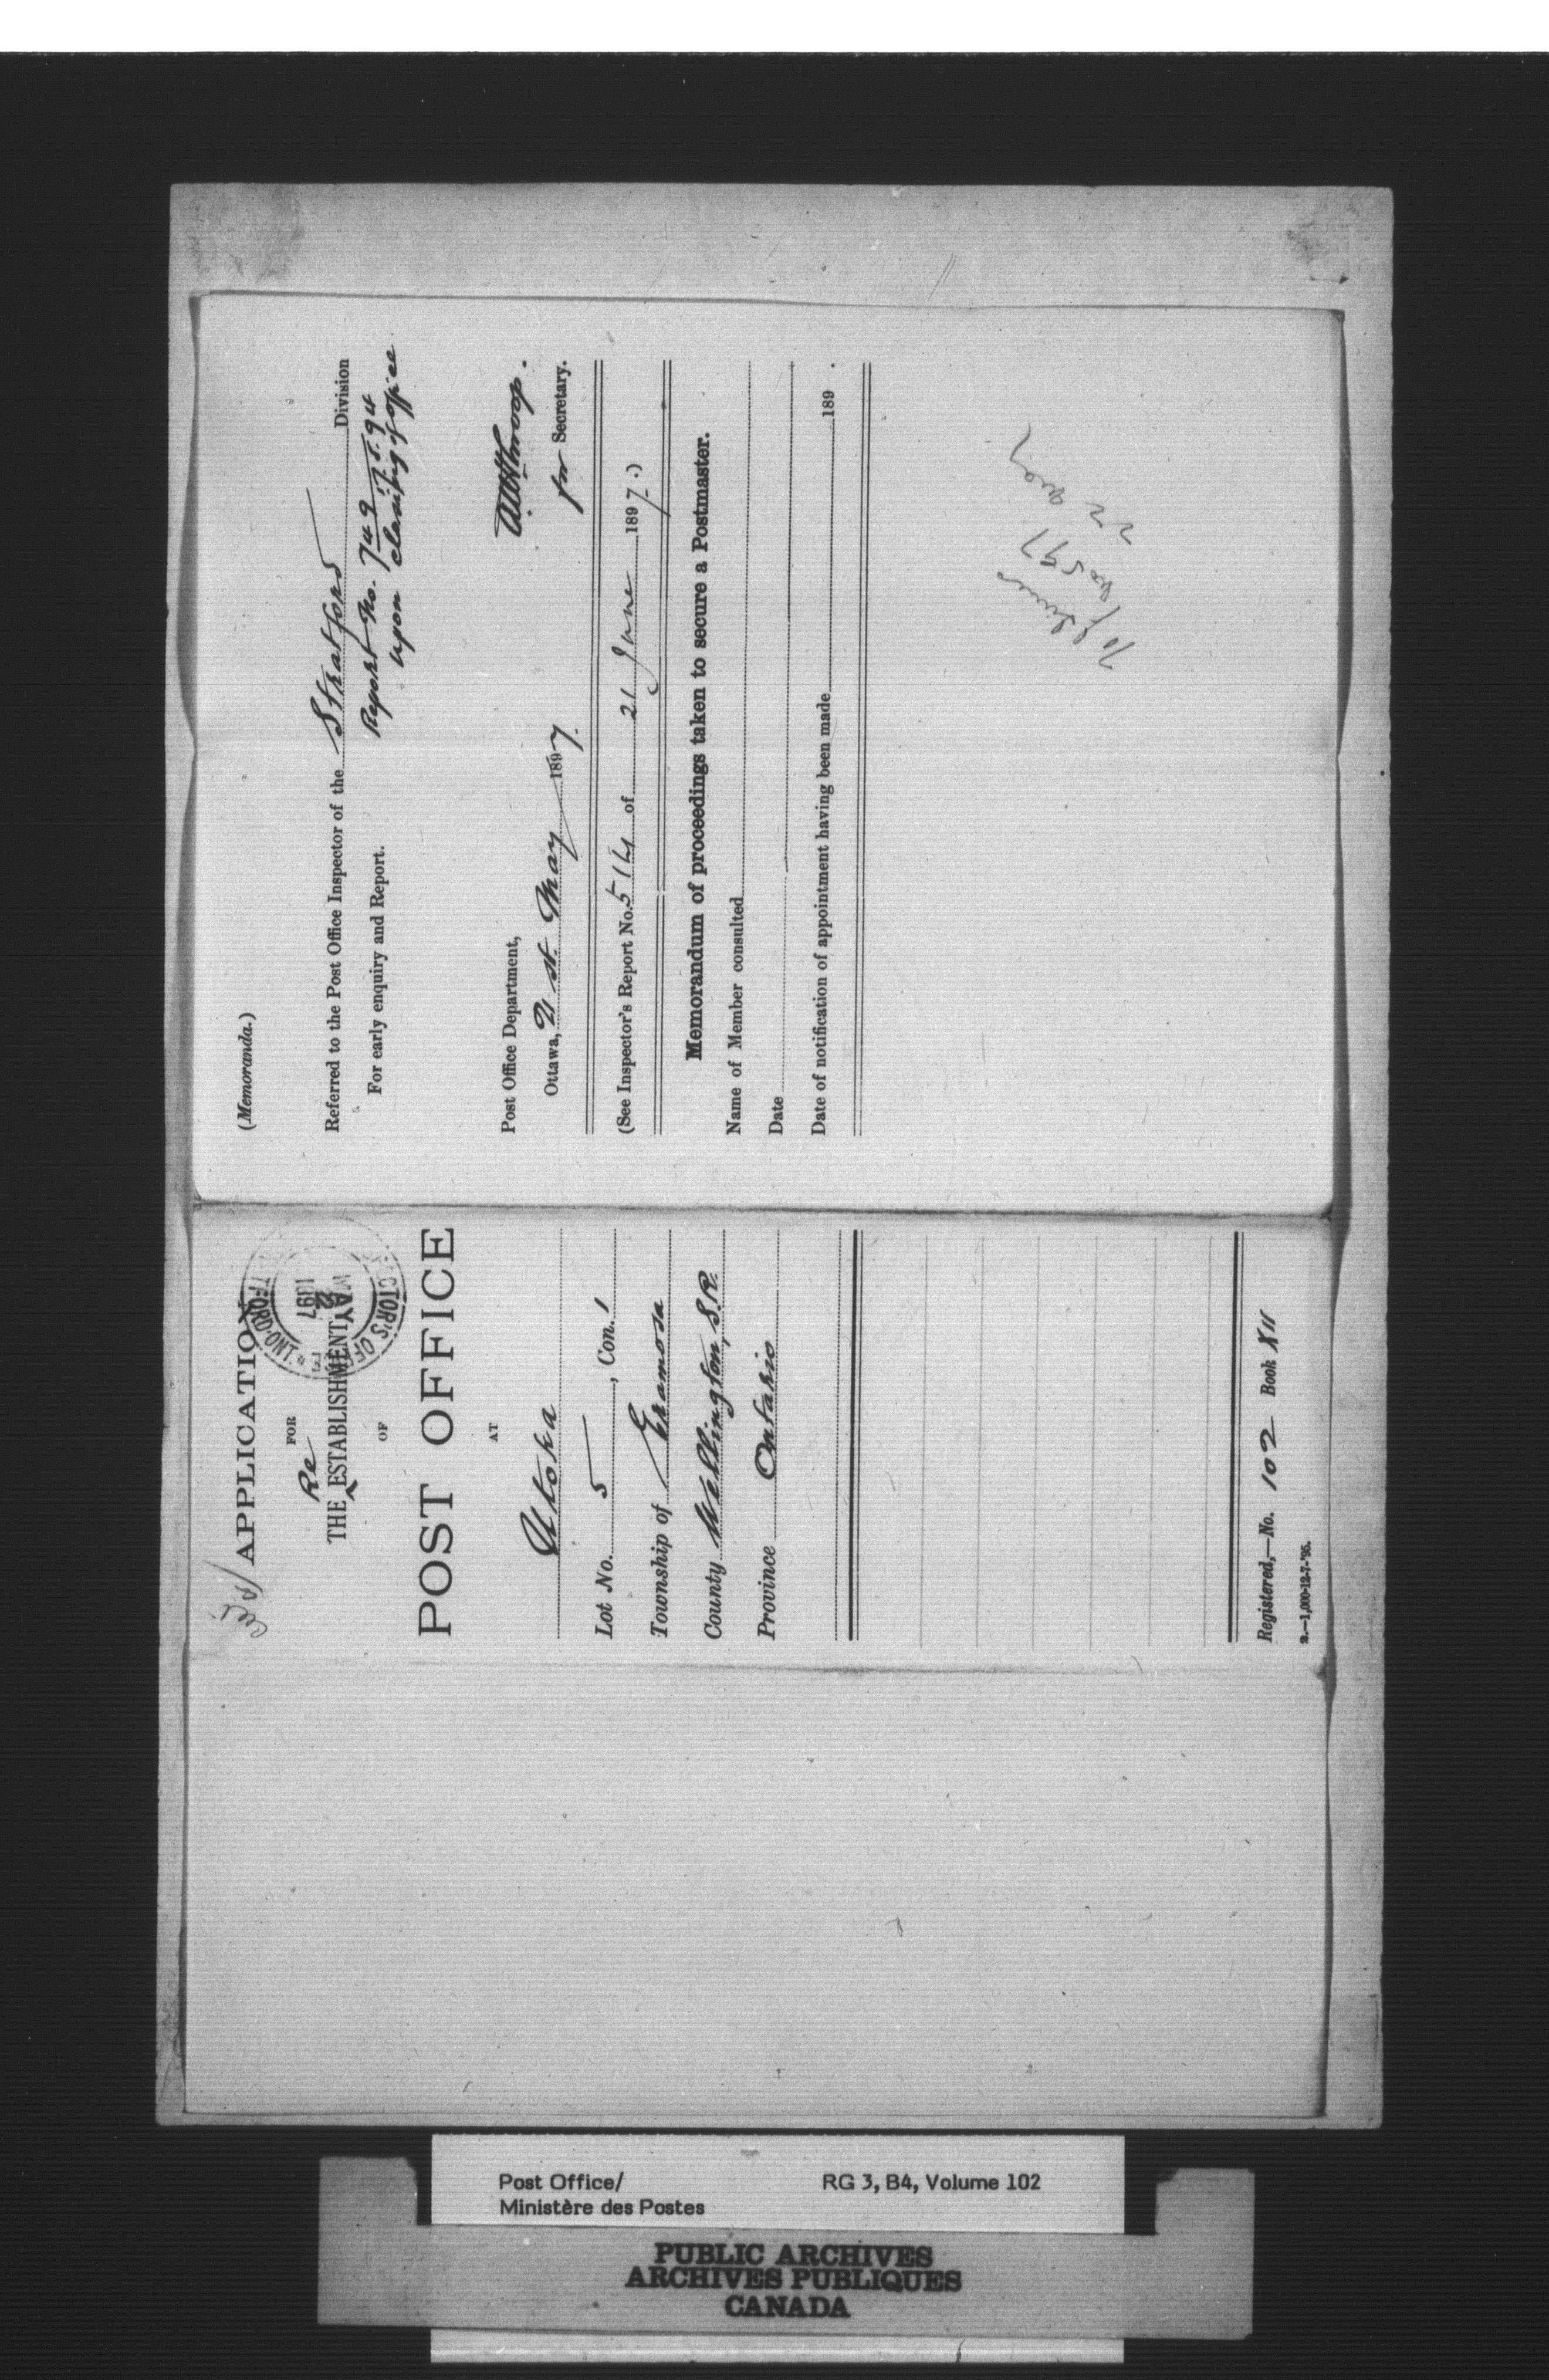 (Memoranda.)
Referred to the Post Office Inspector of the Stratford Division
For early enquiry and Report.
Report No. 749 7.5.94
upon closing of office
Post Office Department,
Ottawa, 21st. May 1897.
for Secretary.
(See Inspector's Report No. 514 of 21 June 1897.)
Memorandum of proceedings taken to secure a Postmaster.
Name of Member consulted
Date
Date of notification of appointment having been made 189 .
No 597
APPLICATION
FOR
Re
THE ESTABLISHMENT
OF
POST OFFICE
AT
Utoka
Lot No. 5, Con. 1
Township of Eramosa
County Wellington, S.R.
Province Ontario
MAY
1897
Registered,—No. 102 Book XII
2.—1,000-12-7-'95.
Post Office/
Ministère des Postes
RG 3, B4, Volume 102
PUBLIC ARCHIVES
ARCHIVES PUBLIQUES
CANADA